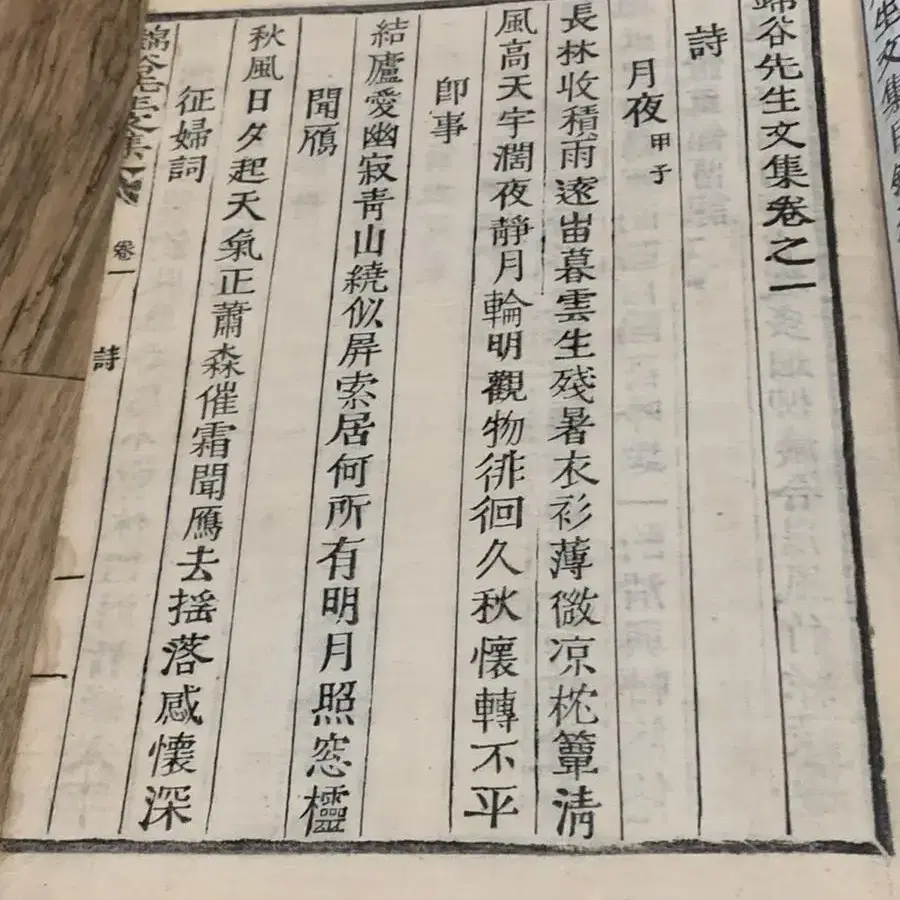 生文集目
谷先生文集卷之一
詩
月夜 甲子
長林收積雨遠峀暮雲生殘暑衣衫薄微凉枕簟清
風高天宇濶夜靜月輪明觀物徘徊久秋懷轉不平
卽事
結廬愛幽寂靑山繞似屛索居何所有明月照窓欞
聞鴈
秋風日夕起天氣正蕭森催霜聞鴈去搖落感懷深
征婦詞
谷先生文集 卷一 詩